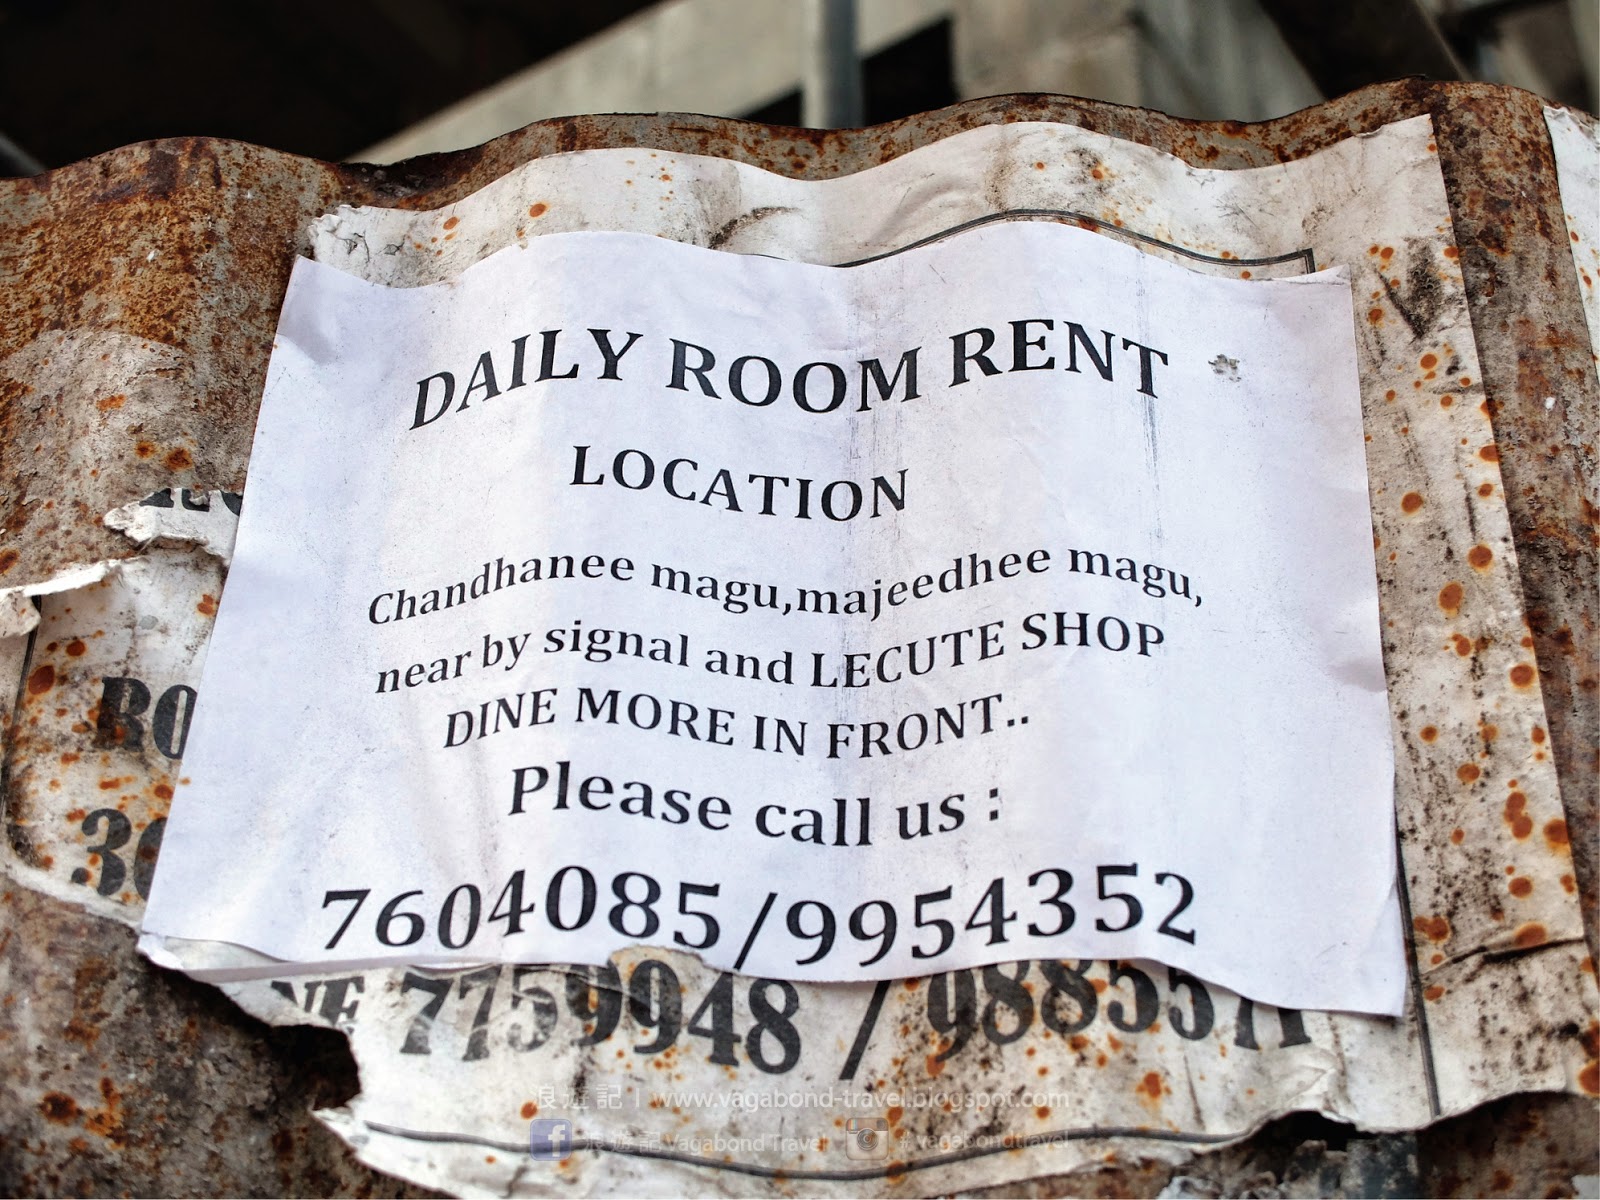 DAILY ROOM RENT
LOCATION
Chandhanee magu,majeedhee magu,
near by signal and LECUTE SHOP
DINE MORE IN FRONT..
Please call us :
7604085/9954352
7759948 / 9885571
浪遊記 | www.vagabond-travel.blogspot.com
浪遊記 Vagabond Travel # vagabondtravel